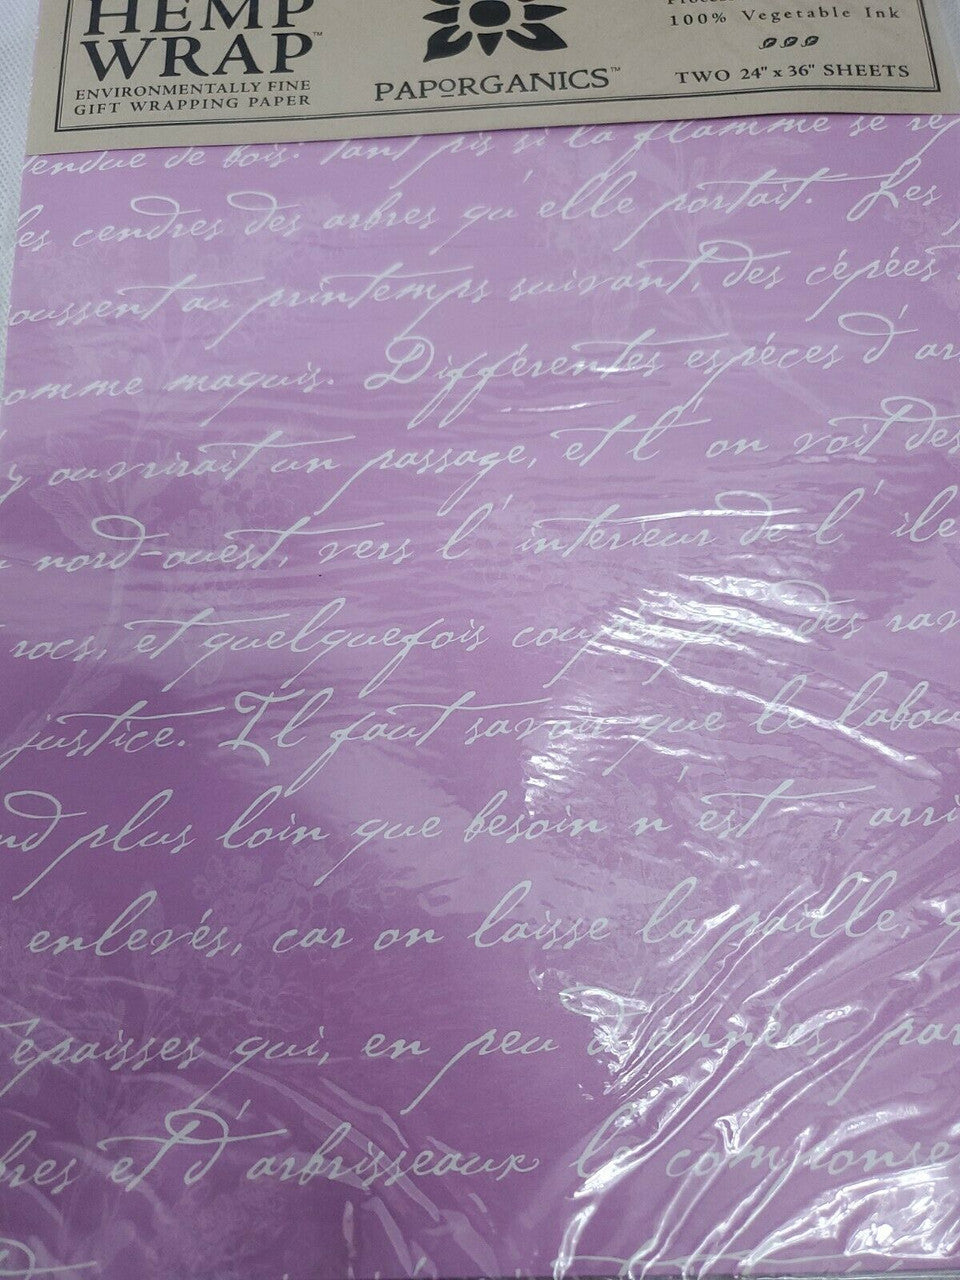 HEMP
WRAP™
ENVIRONMENTALLY FINE
GIFT WRAPPING PAPER
PAPORGANICS™
100% Vegetable Ink
TWO 24" x 36" SHEETS
endue de bois. Tant pis si la flamme se re
les cendres des arbres qu'elle portait. Les
oussent au printemps suivant, des cépées
omme maquis. Différentes espéces d'ar
y ouvrirait un passage, et l'on voit des
nord-ouest, vers l'intérieur de l'ile
rocs, et quelquefois des rav
justice. Il faut savoir que le labou
nd plus loin que besoin n'est, arri
enlevés, car on laisse la paille,
épaisses qui, en peu d'années, par
bres et d'arbrisseaux le compose